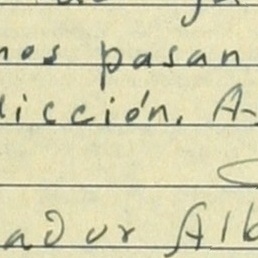 nos pasan
dicción. A
ador Alb